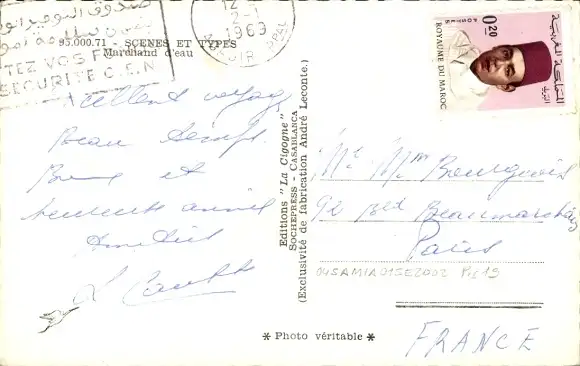 صندوق التوفير
12
2-1
1969
95.000.71 - SCENES ET TYPES
Marchand d'eau
TEZ VOS F
SECURITE C.E.N
0,20
POSTES
ROYAUME DU MAROC
المملكة المغربية
البريد
Excellent voyage
Beau temps
Bonne et
heureuse année
Amitiés
Editions "La Cigogne"
SOCHEPRESS - CASABLANCA
(Exclusivité de fabrication André Leconte.)
Mr Mme Bourgeois
92 Bld Beaumarchais
Paris
OUSAMIA01SE2002 Pic19
FRANCE
* Photo véritable *